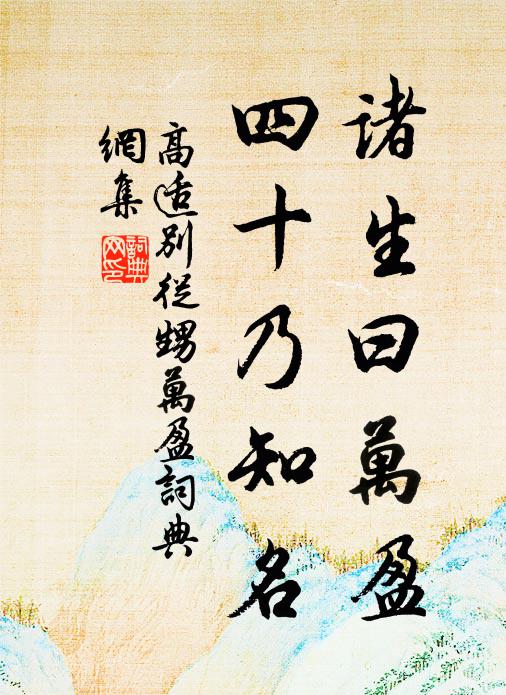 諸生曰萬盈
四十乃知名
高适別從甥萬盈詞典
網集
詞典
网印